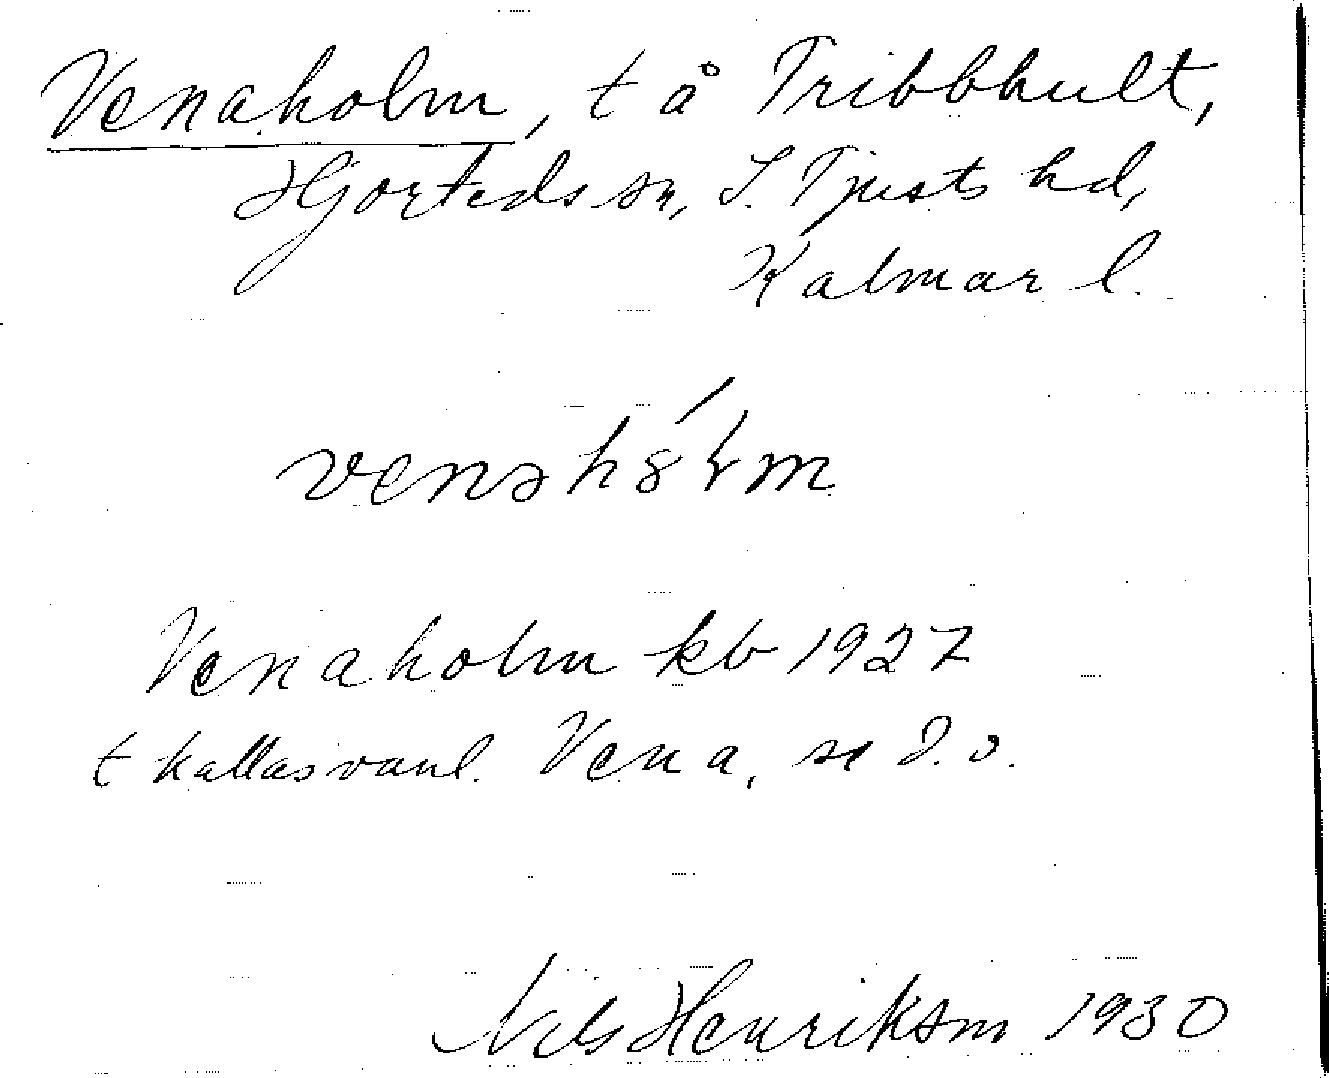 Venaholm, t å Tribbhult,
Hjorteds sn, S. Tjusts hd,
Kalmar l.
venəhȣ́ɫm
Venaholm kb 1927
t kallas vanl. Vena, se d. o.
Nils Henrikson 1930